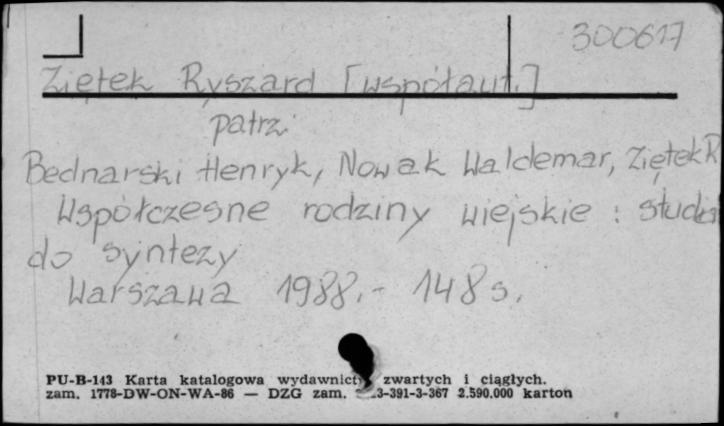 300617
Ziętek Ryszard [współaut.]
patrz:
Bednarski Henryk, Nowak Waldemar, Ziętek R
Współczesne rodziny wiejskie : studia
do syntezy
Warszawa 1988.- 148 s.
PU-B-143 Karta katalogowa wydawnictw zwartych i ciągłych.
zam. 1778-DW-ON-WA-86 — DZG zam. 3-391-3-367 2.590.000 karton